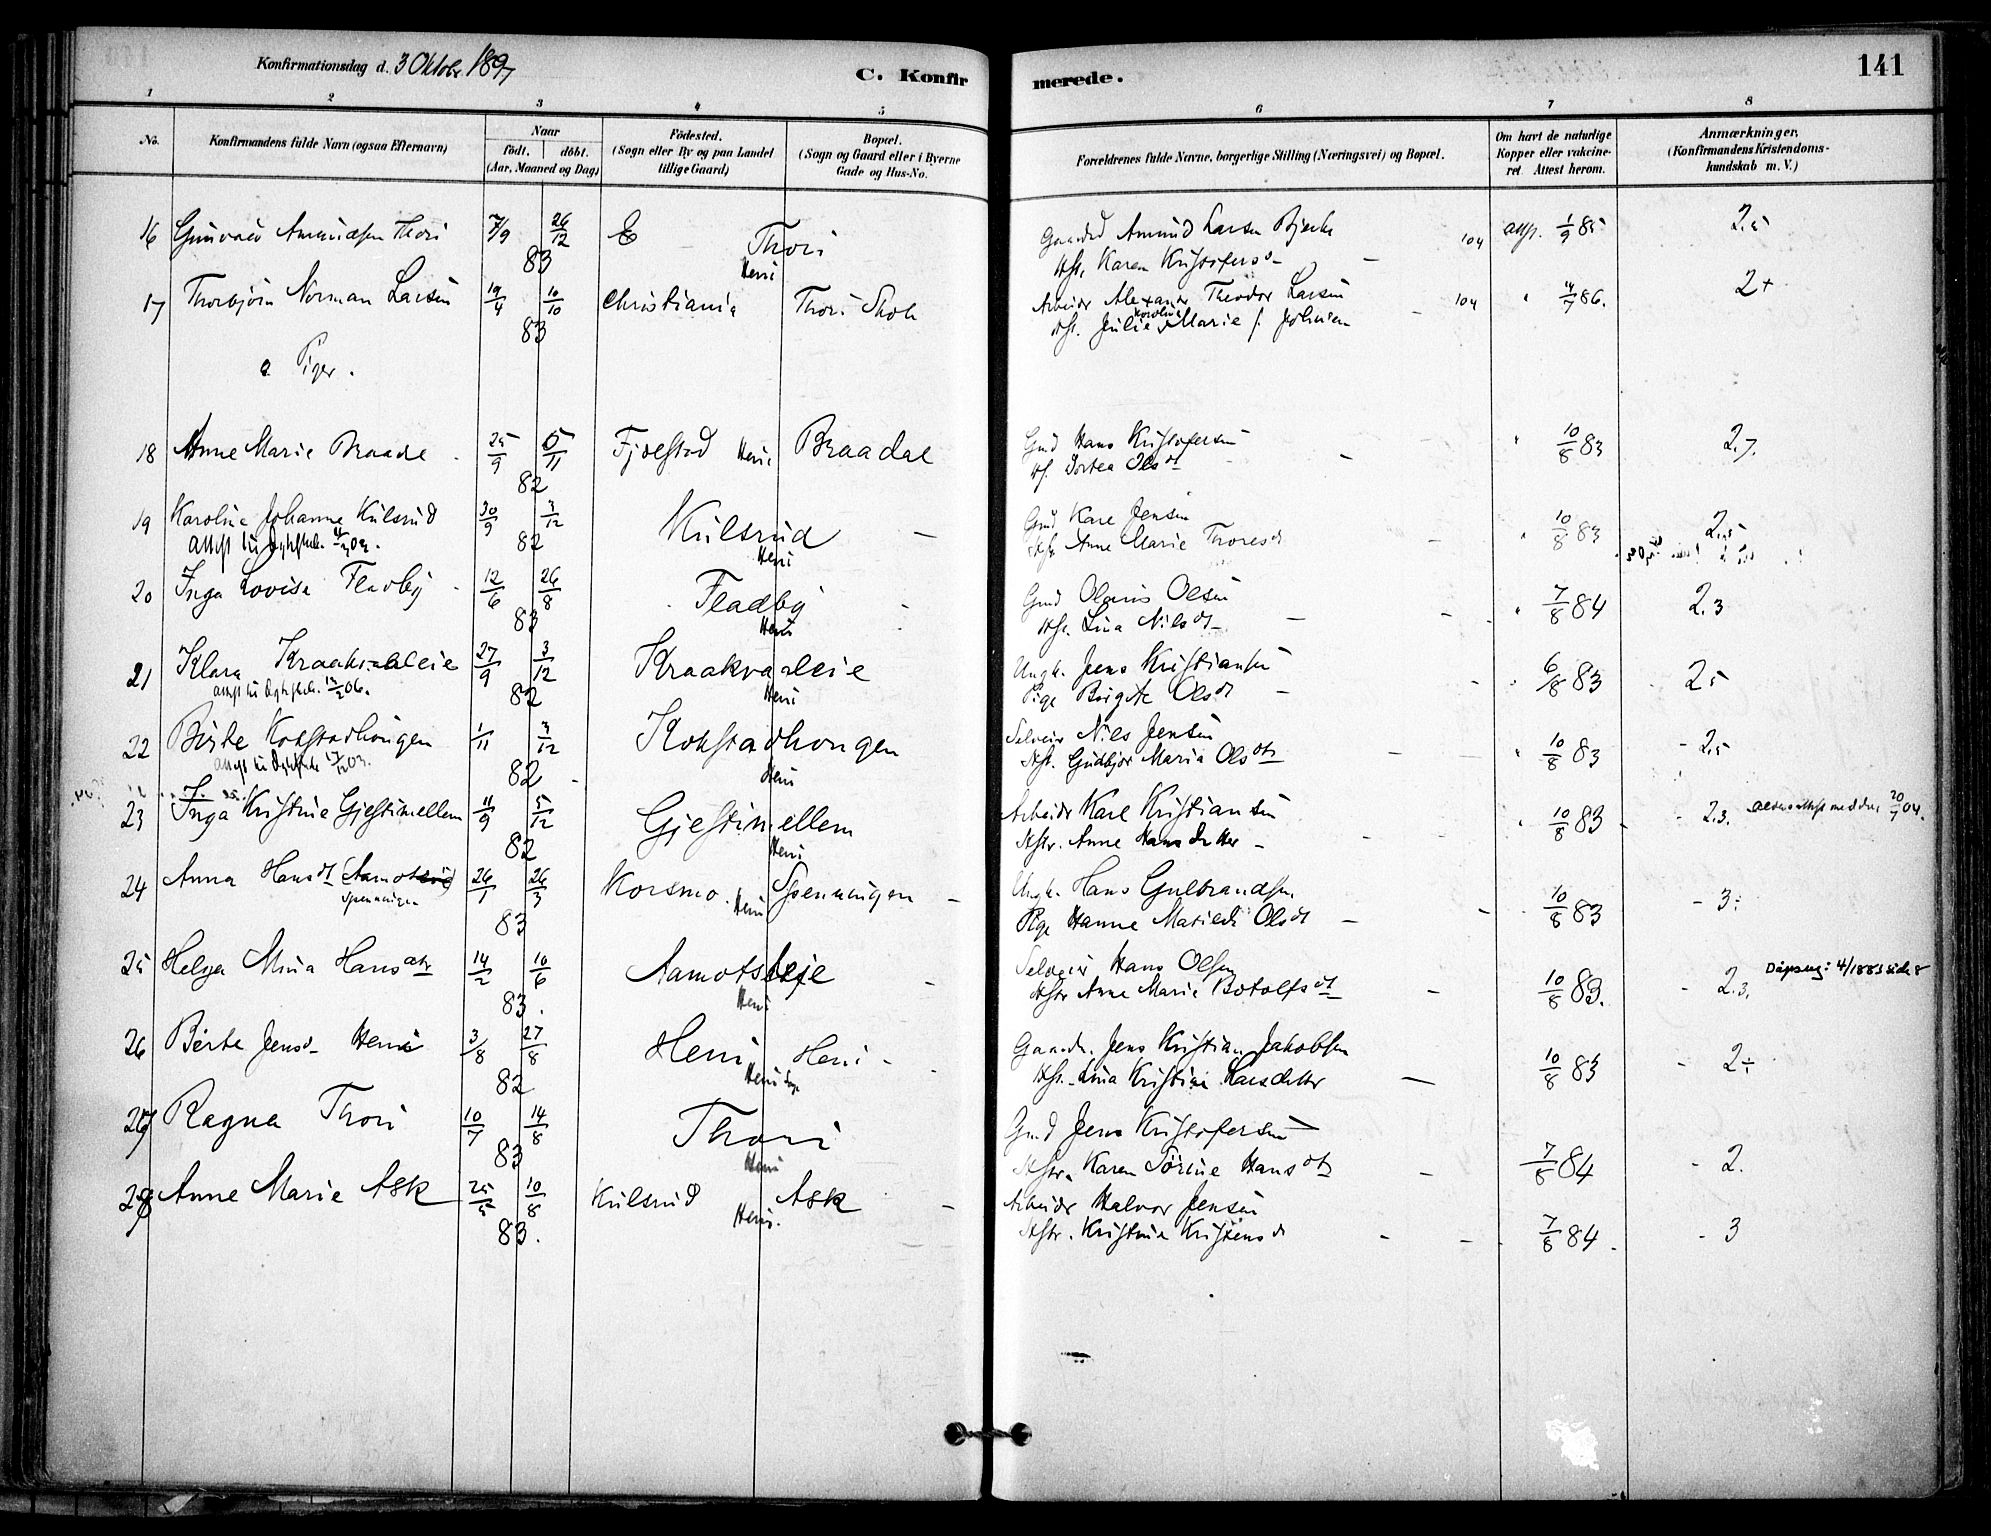 Konfirmationsdag d. 3 Oktobr. 1897
C. Konfirmerede.
141
1 2 3 4 5 6 7 8
No.
Konfirmandens fulde Navn (ogsaa Efternavn)
Naar
födt. döbt.
(Aar, Maaned og Dag)
Födested.
(Sogn eller By og paa Landet
tillige Gaard)
Bopæl.
(Sogn og Gaard eller i Byerne
Gade og Hus-No.
Forældrenes fulde Navne, borgerlige Stilling (Næringsvei) og Bopæl.
Om havt de naturlige
Kopper eller vakcine-
ret. Attest herom.
Anmærkninger.
(Konfirmandens Kristendoms-
kundskab m. V.)
16 Amundsen Thori 7/9 26/12 Thori Gaardbr Amund Larsen Bjerke 104 att. 1/9 85 2.5
83 Heni Hstr. Karen Kristofersd –
17 Thorbjörn Norman Larsen 19/4 10/10 Christiania Thori Arbeidr Alexander Theodor Larsen 104 " 14/7 86. 2+
83 Hstr. Julie Karoline Marie f. Johnsen
a Piger.
18 Anne Marie Braade 25/9 5/11 Fjelstad Heni Braadal Gmd Hans Kristofersen " 10/8 83 2.7.
82 Hf. Dortea Olsdt –
19 Karoline Johanne Kulsrud 30/9 3/12 Kulsrud – Gmd Karl Jensen " 10/8 83 2.5
attest til 82 Heni Hstr Anne Marie Thoresdt –
20 Inga Lovise Fladby 12/6 26/8 Fladby Gmd Olaus Olsen " 7/8 84 2.3
83 Heni Hstr. Lina Nilsdt –
21 Klara Kraakvaleie 27/9 3/12 Kraakvaleie Ungk. Jens Kristiansen " 6/8 83 25
attest til 06. 82 Heni Pige Birgite Olsdt –
22 Birte Kokstadhougen 1/11 3/12 Kokstadhougen Selveier Nils Jensen " 10/8 83 – 2.5
attest til 03. 82 Heni Hstr. Gudbjør Maria Olsdtr –
23 Inga Kristine Gjestimellem 11/9 5/12 Gjestimellem Arbeidr Karl Kristiansen " 10/8 83 – 2.3. 20/7 04.
82 Heni Hstr. Anne Hansdtter –
24 Anna Hansdt (Aamotseie) 26/1 26/3 Korsmo. Heni Spenningen – Ungk. Hans Gulbrandsen 10/8 83 – 3÷
Spenningen 83 Pige Hanne Matilde Olsdt –
25 Helga Mina Hansdtr 14/2 10/6 Aamotseie – Selveier Hans Olsen 10/8 83. – 2.3. Dåpsreg: 4/1883 side 8
83. Heni Hstr Anne Marie Botolfsdt –
26 Berte Jensd– Heni 3/8 27/8 Heni Heni – Gaardbr. Jens Kristian Jakobsen 10/8 83 – 2÷
82 Heni Hstr. Lina Kristine Larsdatter –
27 Ragna Thori 10/7 14/8 Thori Gmd Jens Kristofersen
83 Heni Hstr. Karen Sørine Hansdt – 7/8 84 – 2.
28 Anne Marie Ask 25/5 10/8 Kulsrud Ask – Arbeidr Halvor Jensen
83. Heni. Hstr. Kristine Kristensd – 7/8 84. – 3